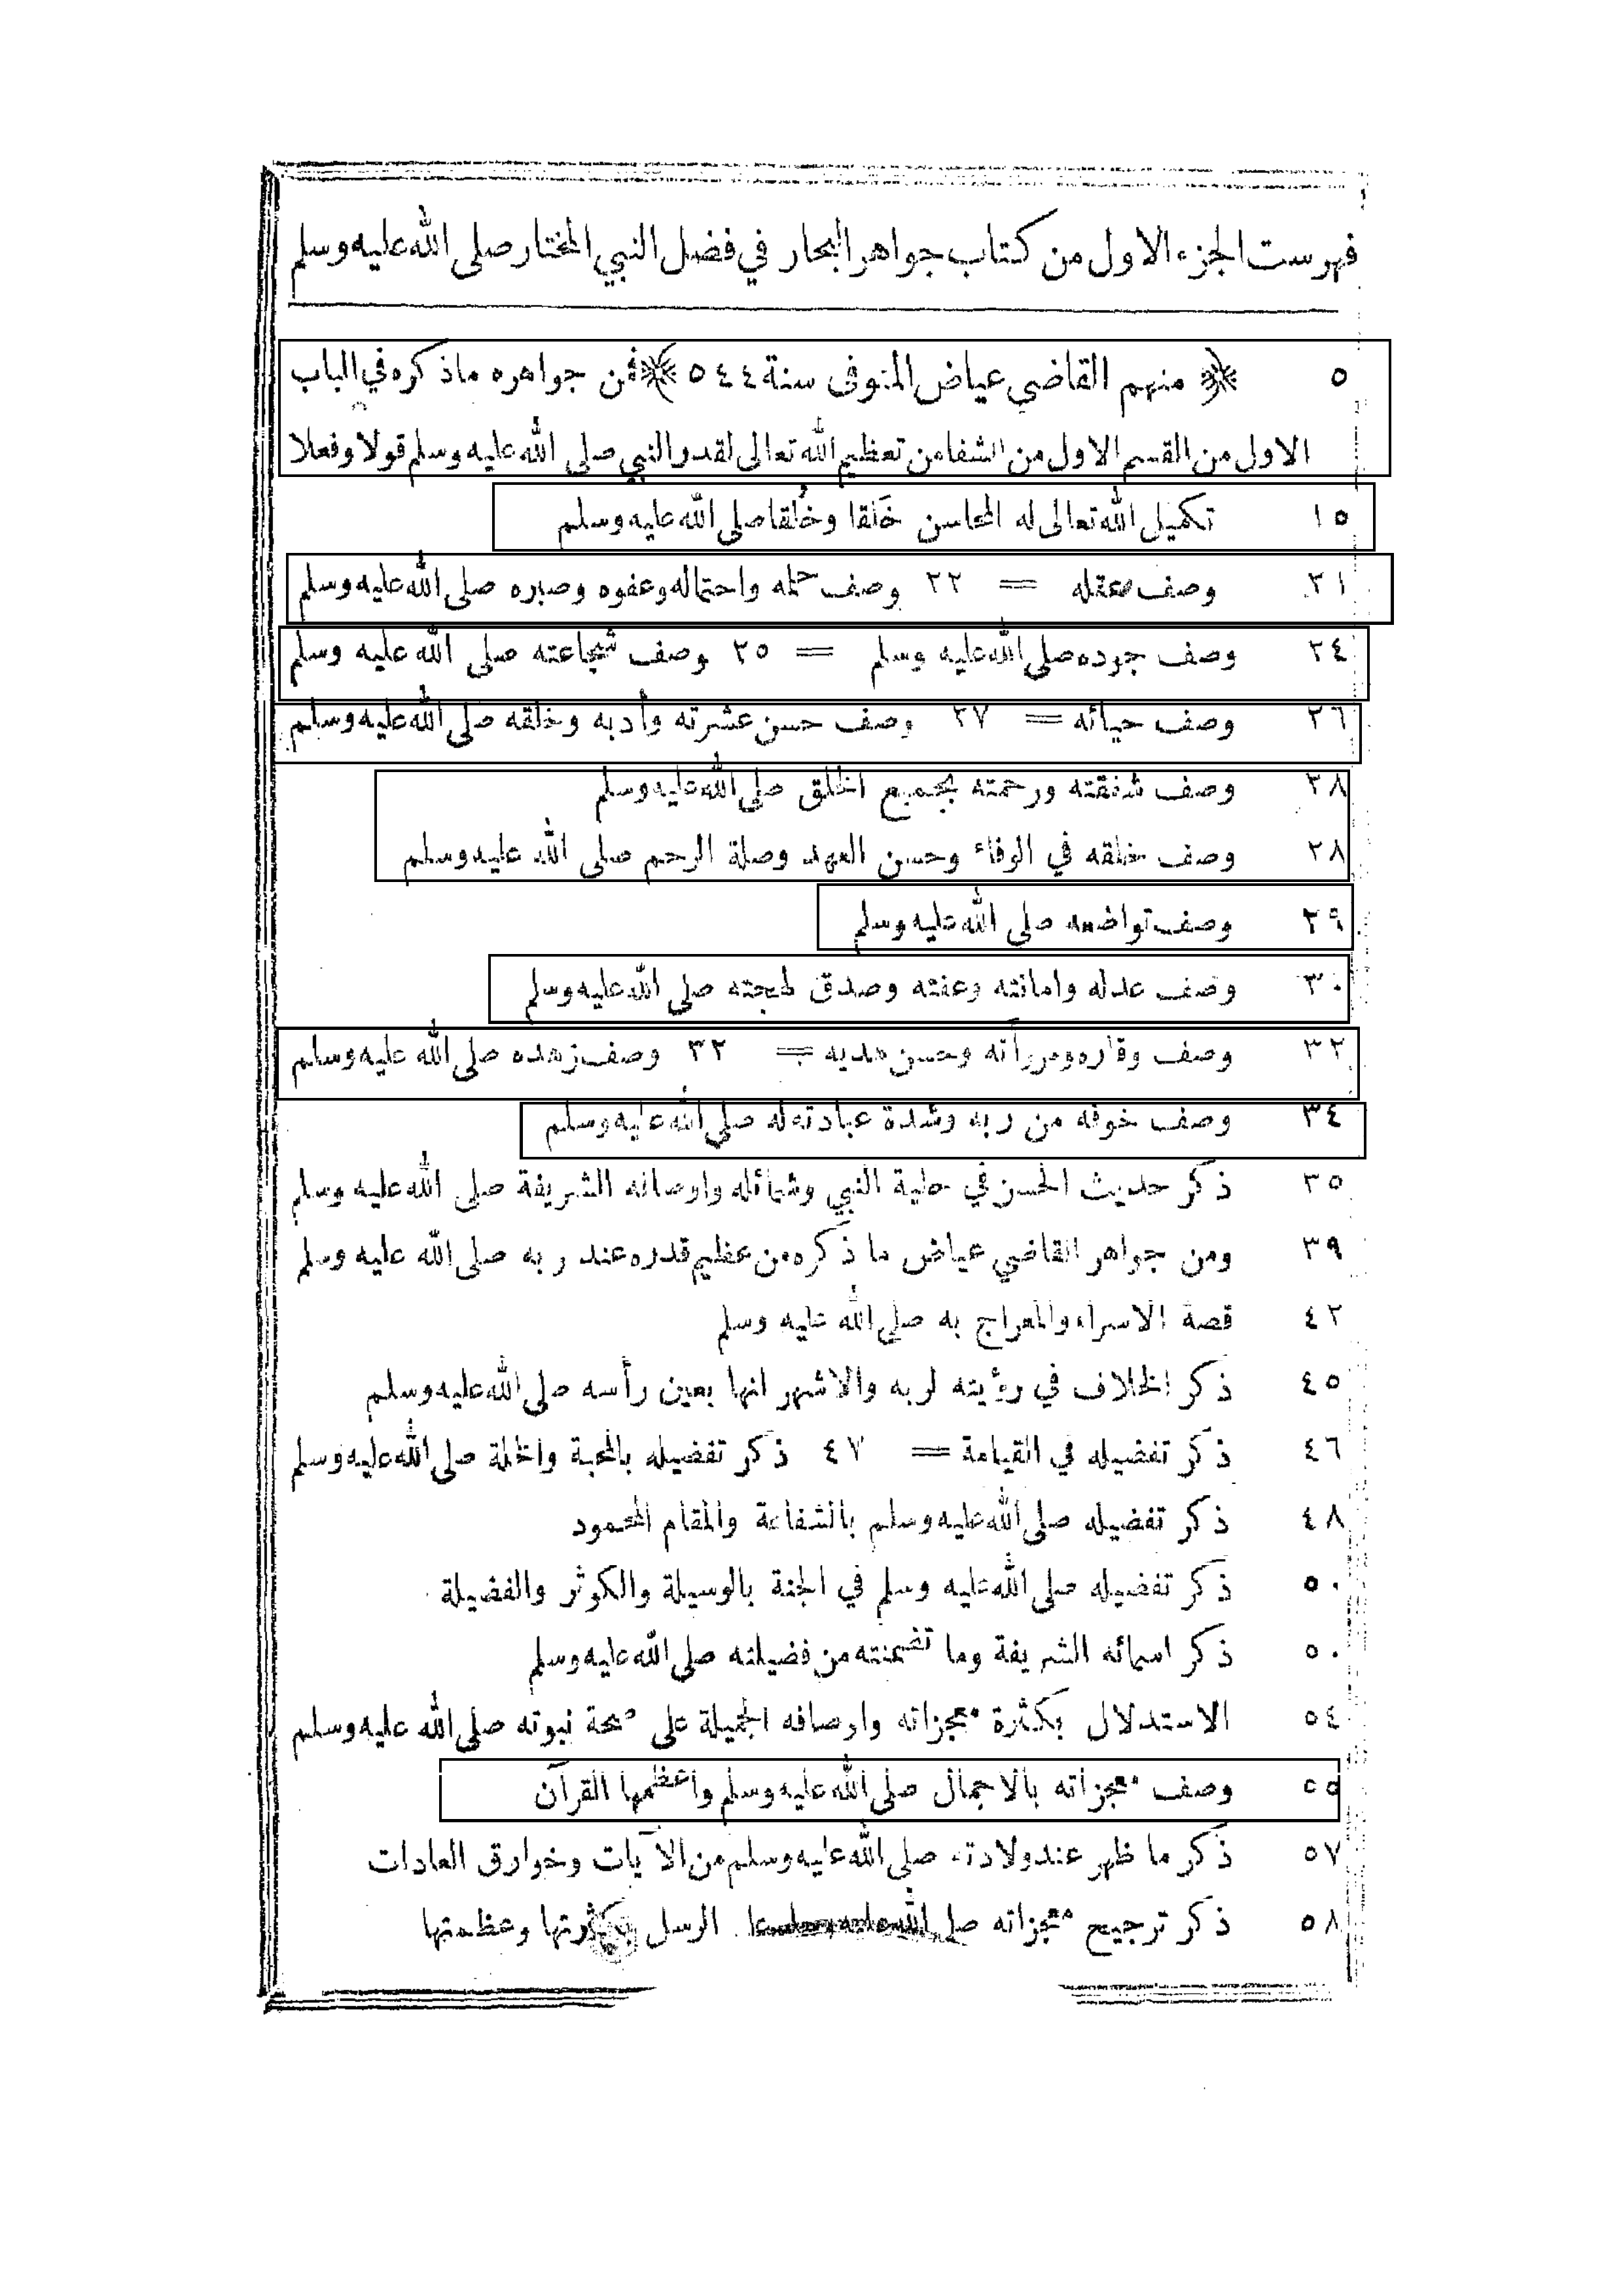 فهرست الجزء الاول من كتاب جواهر البحار في فضل النبي المختار صلى الله عليه وسلم
٥ ﴿ منهم القاضي عياض المتوفى سنة ٥٤٤ ﴾ فمن جواهره ما ذكره في الباب
الاول من القسم الاول من الشفا من تعظيم الله تعالى لقدر النبي صلى الله عليه وسلم قولا وفعلا
١٥ تكميل الله تعالى له المحاسن خَلقا وخُلقا صلى الله عليه وسلم
٢١ وصف عقله = ٢٢ وصف حمله واحتماله وعفوه وصبره صلى الله عليه وسلم
٢٤ وصف جوده صلى الله عليه وسلم = ٢٥ وصف شجاعته صلى الله عليه وسلم
٢٦ وصف حيائه = ٢٧ وصف حسن عشرته وأدبه وخلقه صلى الله عليه وسلم
٢٨ وصف شفقته ورحمته بجميع الخلق صلى الله عليه وسلم
٢٨ وصف خلقه في الوفاء وحسن العهد وصلة الرحم صلى الله عليه وسلم
٢٩ وصف تواضعه صلى الله عليه وسلم
٣٠ وصف عدله وامانته وعفته وصدق لهجته صلى الله عليه وسلم
٣٢ وصف وقاره ومروأته وحسن هديه = ٣٢ وصف زهده صلى الله عليه وسلم
٣٤ وصف خوفه من ربه وشدة عبادته له صلى الله عليه وسلم
٣٥ ذكر حديث الحسن في حلية النبي وشمائله واوصافه الشريفة صلى الله عليه وسلم
٣٩ ومن جواهر القاضي عياض ما ذكره من عظيم قدره عند ربه صلى الله عليه وسلم
٤٢ قصة الاسراء والمعراج به صلى الله عليه وسلم
٤٥ ذكر الخلاف في رؤيته لربه والاشهر انها بعين رأسه صلى الله عليه وسلم
٤٦ ذكر تفضيله في القيامة = ٤٧ ذكر تفضيله بالمحبة والخلة صلى الله عليه وسلم
٤٨ ذكر تفضيله صلى الله عليه وسلم بالشفاعة والمقام المحمود
٥٠ ذكر تفضيله صلى الله عليه وسلم في الجنة بالوسيلة والكوثر والفضيلة
٥٠ ذكر اسمائه الشريفة وما تضمنته من فضيلته صلى الله عليه وسلم
٥٤ الاستدلال بكثرة معجزاته واوصافه الجميلة على صحة نبوته صلى الله عليه وسلم
٥٥ وصف معجزاته بالاجمال صلى الله عليه وسلم واعظمها القرآن
٥٧ ذكر ما ظهر عند ولادته صلى الله عليه وسلم من الآيات وخوارق العادات
٥٨ ذكر ترجيح معجزاته صلى الله عليه وسلم على الرسل بكثرتها وعظمتها